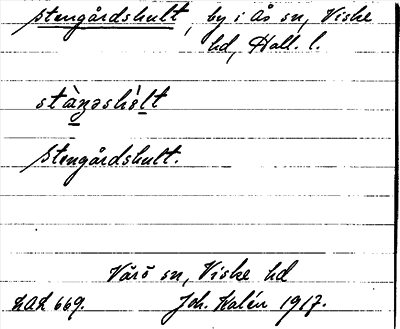 Stengårdshult, by i Ås sn, Viske
hd, Hall. l.
stàŋəshùlt
Stengårdshult.
Värö sn, Viske hd
KAK 669. Joh. Kalén 1917.